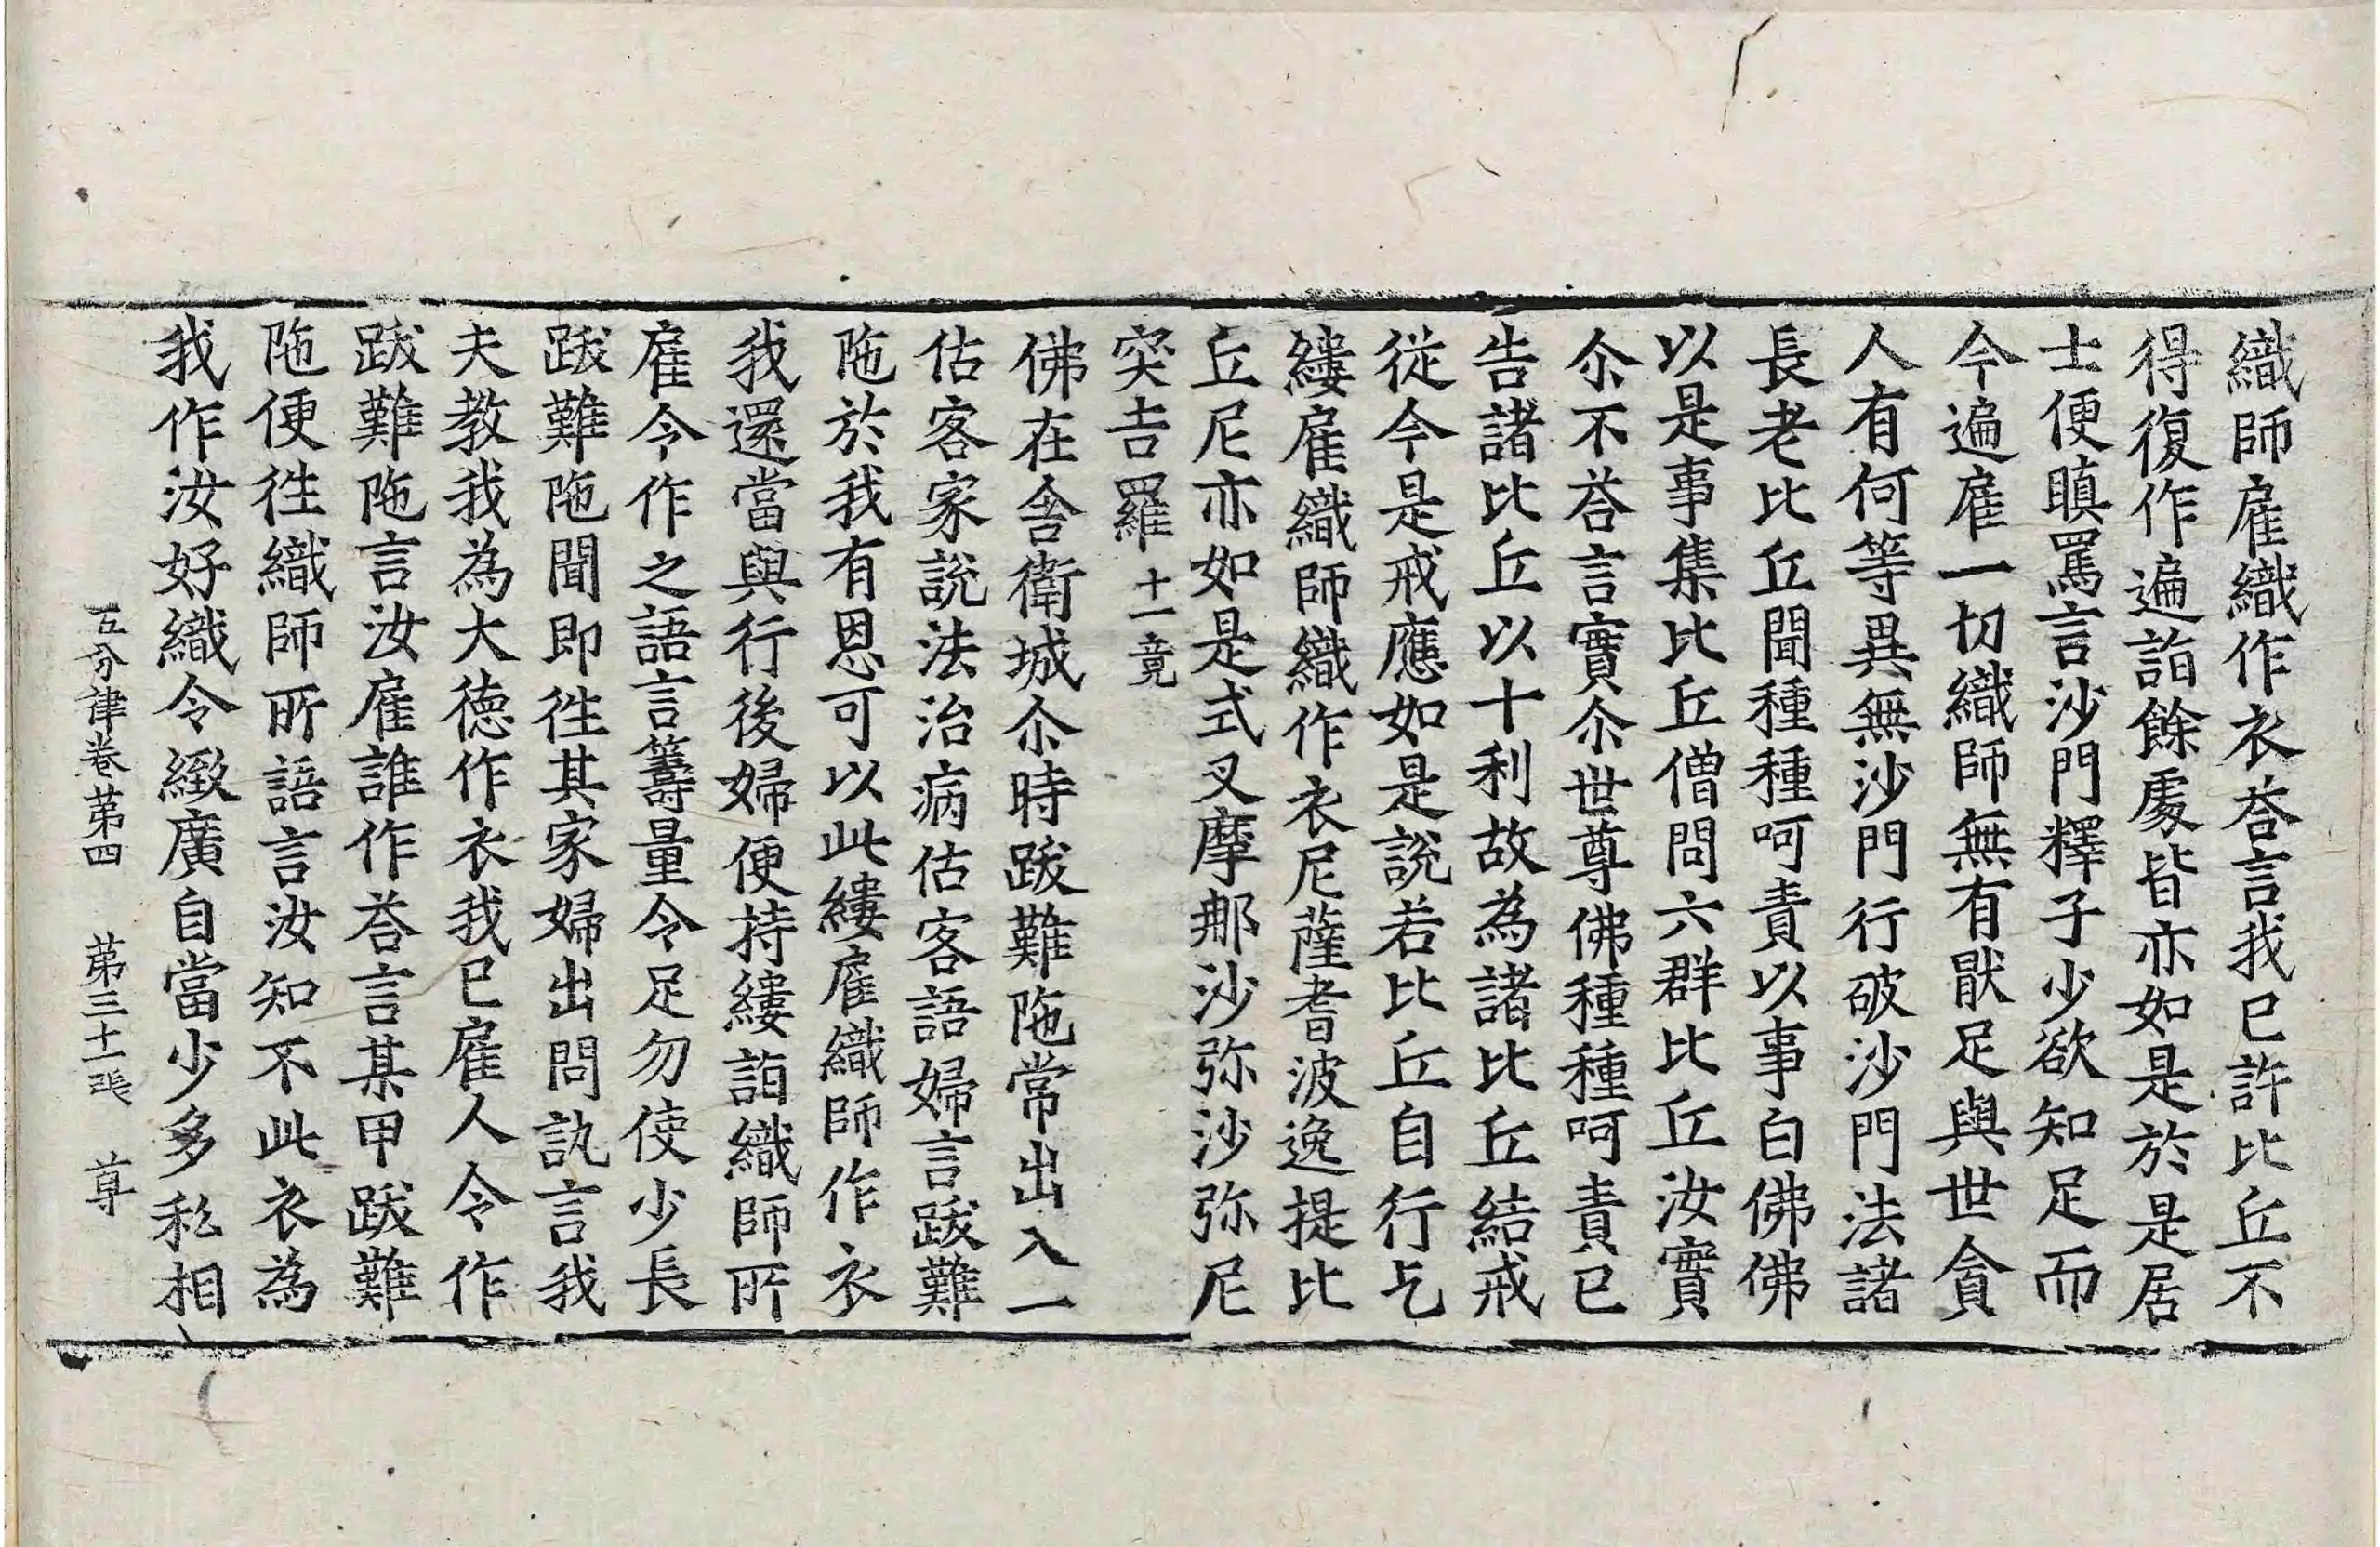 織師雇織作衣荅言我已許比丘不
得復作遍詣餘處皆亦如是於是居
士便瞋罵言沙門釋子少欲知足而
今遍雇一切織師無有猒足與世貪
人有何等異無沙門行破沙門法諸
長老比丘聞種種呵責以事白佛佛
以是事集比丘僧問六群比丘汝實
尒不荅言實尒世尊佛種種呵責已
告諸比丘以十利故為諸比丘結戒
從今是戒應如是說若比丘自行乞
縷雇織師織作衣尼薩耆波逸提比
丘尼亦如是式叉摩那沙弥沙弥尼
突吉羅十一竟
佛在舍衛城尒時跋難陁常出入一
估客家說法治病估客語婦言跋難
陁於我有恩可以此縷雇織師作衣
我還當與行後婦便持縷詣織師所
雇令作之語言籌量令足勿使少長
跋難陁聞即徃其家婦出問訊言我
夫教我為大德作衣我已雇人令作
跋難陁言汝雇誰作荅言某甲跋難
陁便徃織師所語言汝知不此衣為
我作汝好織令緻廣自當少多私相
五分律卷第四 第三十一張 尊